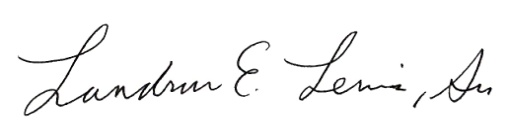 Landrum E. Lewis, Sr